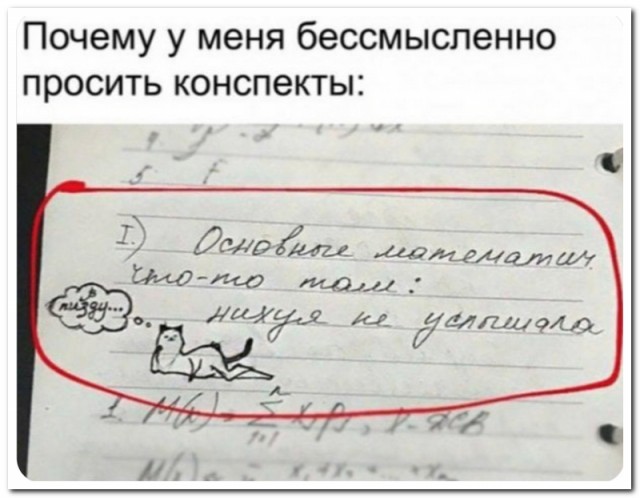 Почему у меня бессмысленно
просить конспекты:
5
I.) Основные математич.
что-то там:
нихуя не услышала
в
пизду...
1. M(x) = ∑ xᵢpᵢ,